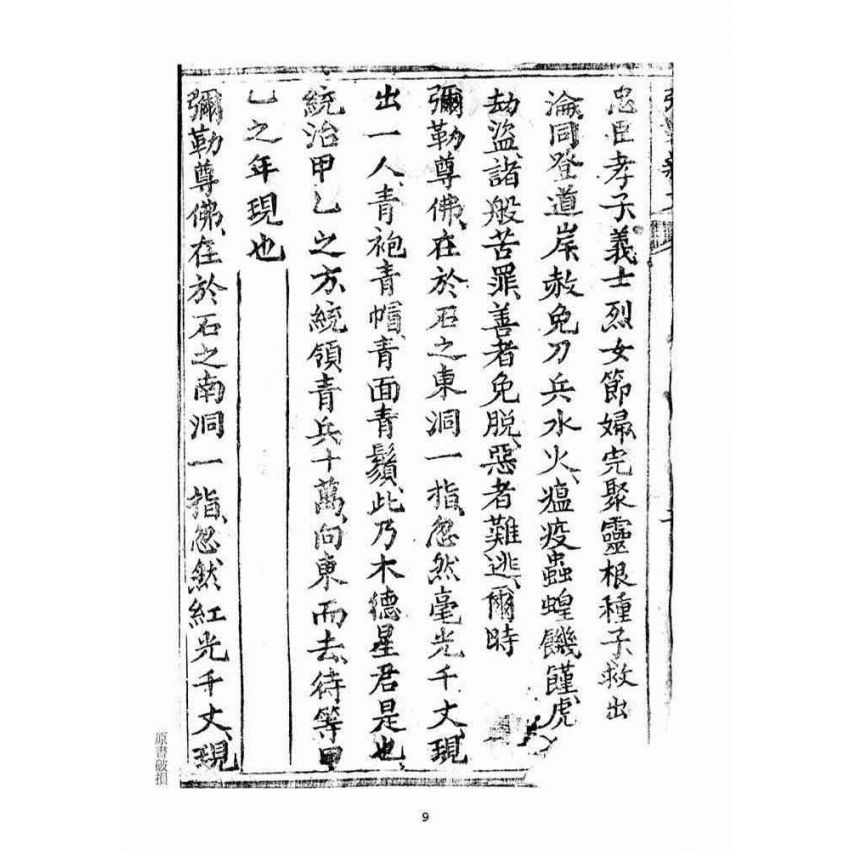 忠臣孝子義士烈女節婦完聚靈根種子救出
淪同登道岸赦免刀兵水火瘟疫蟲蝗饑饉虎
劫盜諸般苦罪善者免脫惡者難逃爾時
彌勒尊佛在於石之東洞一指忽然毫光千丈現
出一人青袍青帽青面青鬚此乃木德星君是也
統治甲乙之方統領青兵十萬向東而去待等甲
乙之年現也
彌勒尊佛在於石之南洞一指忽然紅光千丈現
原書破損
9